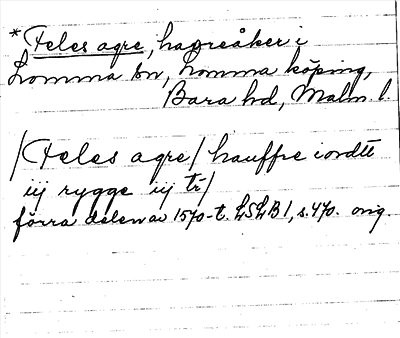 *Feles agre, havreåker i
Lomma sn, Lomma köping,
Bara hd, Malm. l.
/Feles agre/ hauffre iordtt
iij rygge iij tr/
förra delen av 1570-t. LSLB 1, s. 470. orig.